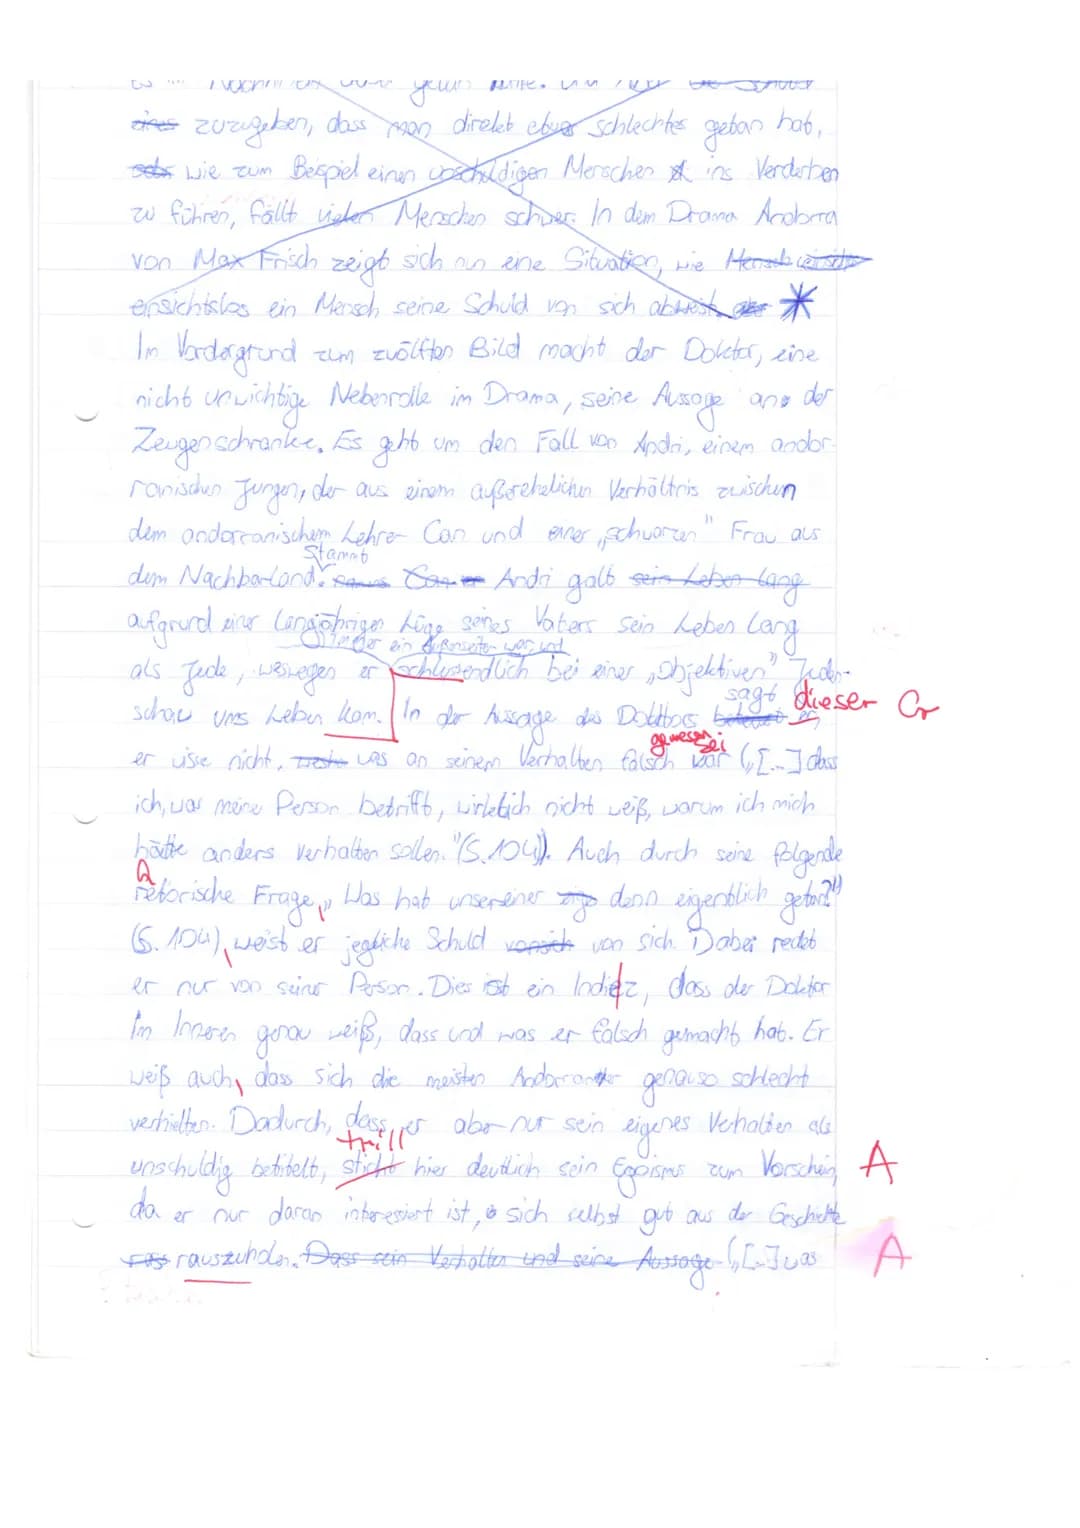 zuzugeben, dass man direkt etwas schlechtes getan hat,
wie zum Beispiel einen unschuldigen Menschen ins Verderben
zu führen, fällt vielen Menschen schwer. In dem Drama Andorra
von Max Frisch zeigt sich nun eine Situation, wie
ein Mensch seine Schuld von sich abweist. *
Im Vordergrund zum zwölften Bild macht der Doktor, eine
nicht unwichtige Nebenrolle im Drama, seine Aussage an der
Zeugenschranke. Es geht um den Fall von Andri, einem andor-
ranischen Jungen, der aus einem außerehelichen Verhältnis zwischen
dem andorranischem Lehrer Can und einer „schwarzen" Frau aus
stammt
dem Nachbarland. Andri galt sein Leben lang
aufgrund einer langjährigen Lüge seines Vaters sein Leben lang
immer ein Außenseiter war und
als Jude, weswegen er schlussendlich bei einer „Objektiven" Juden-
sagt dieser Gr
schau ums Leben kam. In der Aussage des Doktors er,
gewesen sei
er wisse nicht, was an seinem Verhalten falsch war („[...] dass
ich, was meine Person betrifft, wirklich nicht weiß, warum ich mich
hätte anders verhalten sollen."(S.104)). Auch durch seine folgende
R
retorische Frage, „Was hat unsereiner denn eigentlich getan?"
(S. 104), weist er jegliche Schuld von sich. Dabei redet
er nur von seiner Person. Dies ist ein Indiz, dass der Doktor
im Inneren genau weiß, dass und was er falsch gemacht hat. Er
weiß auch, dass sich die meisten Andorraner genauso schlecht
verhielten. Dadurch, dass er aber nur sein eigenes Verhalten als
trill
unschuldig betitelt, sticht hier deutlich sein Egoismus zum Vorschein, A
da er nur daran interessiert ist, sich selbst gut aus der Geschichte
rauszuholen. Dass sein Verhalten und seine Aussage („[...] was A